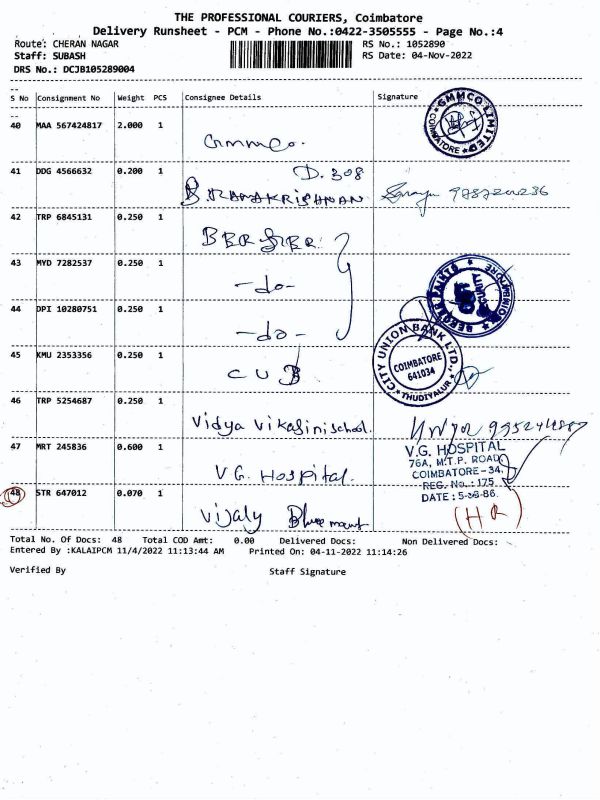 THE PROFESSIONAL COURIERS, Coimbatore
Delivery Runsheet - PCM - Phone No.:0422-3505555 - Page No.:4
Route: CHERAN NAGAR RS No.: 1052890
Staff: SUBASH RS Date: 04-Nov-2022
DRS No.: DCJB105289004
S No Consignment No Weight PCS Consignee Details Signature
40 MAA 567424817 2.000 1 Gmmco. GMMCO LIMITED COIMBATORE
41 DDG 4566632 0.200 1 D.308
B.RAMAKRISHNAN
42 TRP 6845131 0.250 1 BERGER
43 MYD 7282537 0.250 1 -do- BERGER PAINTS
44 DPI 10280751 0.250 1 -do-
45 KMU 2353356 0.250 1 CUB CITY UNION BANK LTD., COIMBATORE 641034 THUDIYALUR
46 TRP 5254687 0.250 1 Vidya Vikasini school.
47 MRT 245836 0.600 1 V.G. Hospital. V.G. HOSPITAL
76A, M.T.P. ROAD
COIMBATORE-34.
REG. No.: 175
DATE: 5-36-86.
48 STR 647012 0.070 1 Vijaly (HR)
Total No. Of Docs: 48 Total COD Amt: 0.00 Delivered Docs: Non Delivered Docs:
Entered By :KALAIPCM 11/4/2022 11:13:44 AM Printed On: 04-11-2022 11:14:26
Verified By Staff Signature